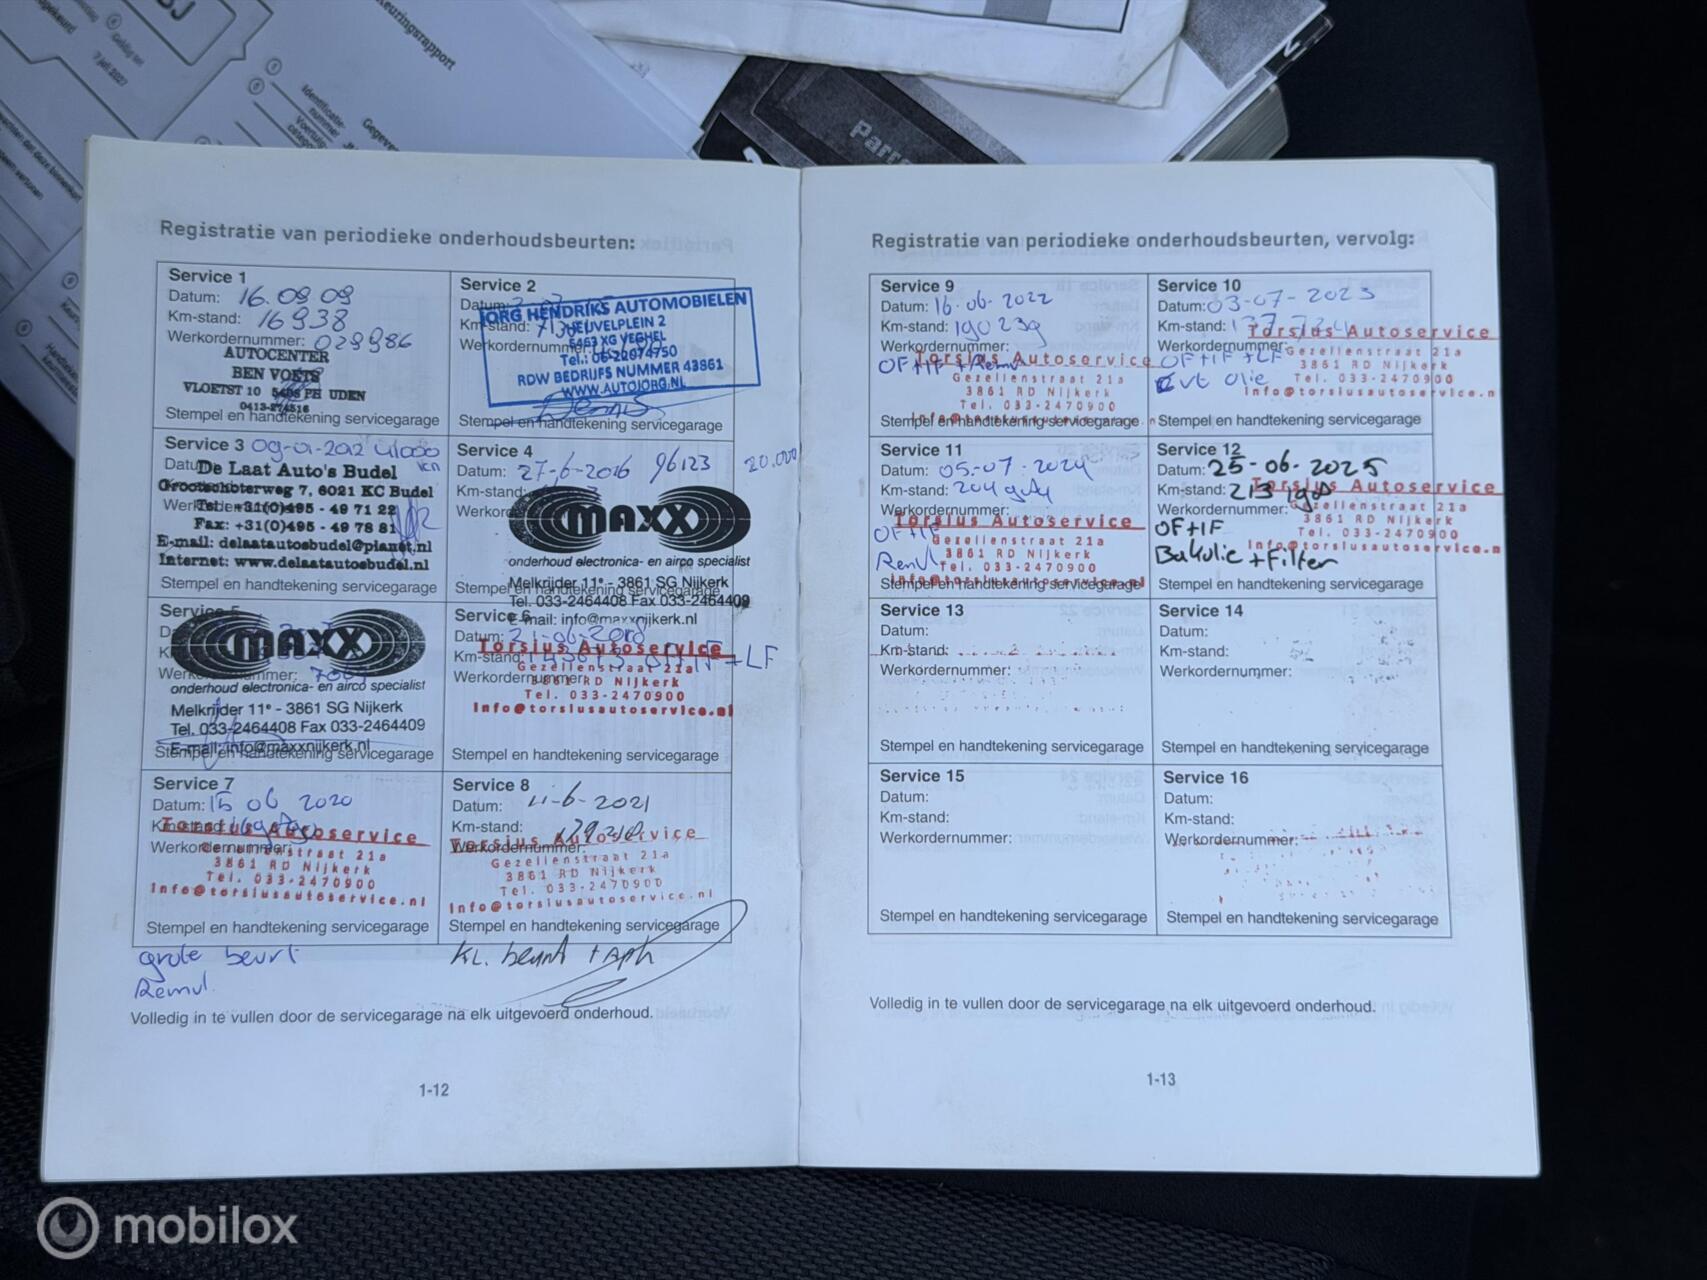 Keuringsrapport
Geldig tot
7 juli 2027
Identificatie-
nummer
Registratie van periodieke onderhoudsbeurten:
Service 1
Datum: 16.09.09
Km-stand: 16938
Werkordernummer: 029986
AUTOCENTER
BEN VOETS
VLOETST 10 5408 PH UDEN
Stempel en handtekening servicegarage
Service 2
Datum:
JORG HENDRIKS AUTOMOBIELEN
Km-stand:
HEUVELPLEIN 2
5463 XG VEGHEL
Werkordernummer:
Tel.: 06-22074750
RDW BEDRIJFS NUMMER 43861
WWW.AUTOJORG.NL
Stempel en handtekening servicegarage
Service 3 09-01-2012
De Laat Auto's Budel
Grootschoterweg 7, 6021 KC Budel
Tel: +31(0)495 - 49 71 22
Fax: +31(0)495 - 49 78 81
E-mail: delaatautosbudel@planet.nl
Internet: www.delaatautosbudel.nl
Stempel en handtekening servicegarage
Service 4
Datum: 27-6-2016 96123 20.000
Km-stand:
MAXX
onderhoud electronica- en airco specialist
Melkrijder 11e - 3861 SG Nijkerk
Stempel en handtekening servicegarage
Tel. 033-2464408 Fax 033-2464409
E-mail: info@maxxnijkerk.nl
Service 5
MAXX
onderhoud electronica- en airco specialist
Melkrijder 11e - 3861 SG Nijkerk
Tel. 033-2464408 Fax 033-2464409
E-mail: info@maxxnijkerk.nl
Stempel en handtekening servicegarage
Service 6
Datum: 21-06-2018
Torsius Autoservice
Km-stand: +LF
Gezellenstraat 21a
Werkordernummer:
3861 RD Nijkerk
Tel. 033-2470900
Info@torsiusautoservice.nl
Stempel en handtekening servicegarage
Service 7
Datum: 15 06 2020
Km-stand:
Torsius Autoservice
Werkordernummer:
Gezellenstraat 21a
3861 RD Nijkerk
Tel. 033-2470900
Info@torsiusautoservice.nl
Stempel en handtekening servicegarage
grote beurt
Remvl.
Service 8
Datum: 11-6-2021
Km-stand:
Torsius Autoservice
Werkordernummer:
Gezellenstraat 21a
3861 RD Nijkerk
Tel. 033-2470900
Info@torsiusautoservice.nl
Stempel en handtekening servicegarage
KL. beurt + apk
Volledig in te vullen door de servicegarage na elk uitgevoerd onderhoud.
1-12
Registratie van periodieke onderhoudsbeurten, vervolg:
Service 9
Datum: 16-06-2022
Km-stand: 190239
Werkordernummer:
Torsius Autoservice
OF+IF + Remvl
Gezellenstraat 21a
3861 RD Nijkerk
Tel. 033-2470900
Stempel en handtekening servicegarage
Service 10
Datum: 03-07-2023
Km-stand:
Torsius Autoservice
Werkordernummer:
Gezellenstraat 21a
OF+IF+LF
3861 RD Nijkerk
olie
Tel. 033-2470900
Info@torsiusautoservice.n
Stempel en handtekening servicegarage
Service 11
Datum: 05-07-2024
Km-stand:
Werkordernummer:
Torsius Autoservice
OF+IF
Gezellenstraat 21a
3861 RD Nijkerk
Remvl
Tel. 033-2470900
Info@torsiusautoservice.nl
Stempel en handtekening servicegarage
Service 12
Datum: 25-06-2025
Torsius Autoservice
Km-stand:
Gezellenstraat 21a
Werkordernummer:
3861 RD Nijkerk
OF+IF
Tel. 033-2470900
Info@torsiusautoservice.n
Bakolie + Filter
Stempel en handtekening servicegarage
Service 13
Datum:
Km-stand:
Werkordernummer:
Stempel en handtekening servicegarage
Service 14
Datum:
Km-stand:
Werkordernummer:
Stempel en handtekening servicegarage
Service 15
Datum:
Km-stand:
Werkordernummer:
Stempel en handtekening servicegarage
Service 16
Datum:
Km-stand:
Werkordernummer:
Stempel en handtekening servicegarage
Volledig in te vullen door de servicegarage na elk uitgevoerd onderhoud.
1-13
mobilox